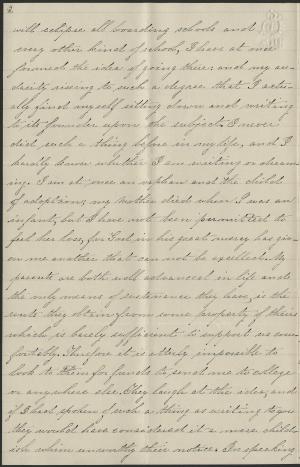 2
will eclipse all boarding schools and
every other kind of school, I have at once
formed the idea of going there; and my an-
xiety rising to such a degree that I actu-
ally find myself sitting down and writing
to its founder upon the subject. I never
did such a thing before in my life, and I
hardly know whether I am writing or dream
ing. I am at once an orphan and the child
of adoption; my mother died when I was an
infant, but I have not been permitted to
feel her loss, for God in his great mercy has giv-
en me another that can not be excelled. My
parents are both well advanced in life and
the only means of sustenance they have, is the
rents they obtain from some property of theirs
which is barely sufficient to support us com-
fortably. Therefore it is utterly impossible to
look to them for funds to send me to college
or anywhere else. They laugh at the idea, and
if I had spoken of such a thing as writing to you
they would have considered it a mere child-
ish whim unworthy their notice. In speaking